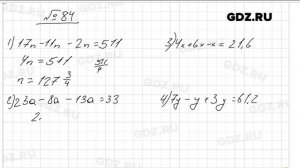 № 84
GDZ.RU
1) 17n - 11n - 2n = 511
4n = 511
n = 127 3/4
2) 23a - 8a - 13a = 33
2.
3) 4x + 6x - x = 21,6
4) 7y - y + 3y = 61,2